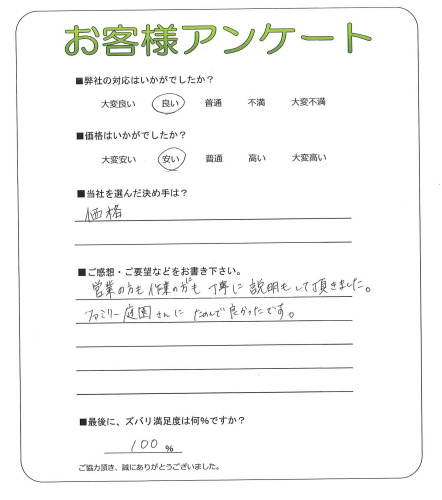 お客様アンケート
■弊社の対応はいかがでしたか？
大変良い 良い 普通 不満 大変不満
■価格はいかがでしたか？
大変安い 安い 普通 高い 大変高い
■当社を選んだ決め手は？
価格
■ご感想・ご要望などをお書き下さい。
営業の方も作業の方も丁寧に説明もして頂きました。
ファミリー庭園さんにたのんで良かったです。
■最後に、ズバリ満足度は何％ですか？
100 %
ご協力頂き、誠にありがとうございました。